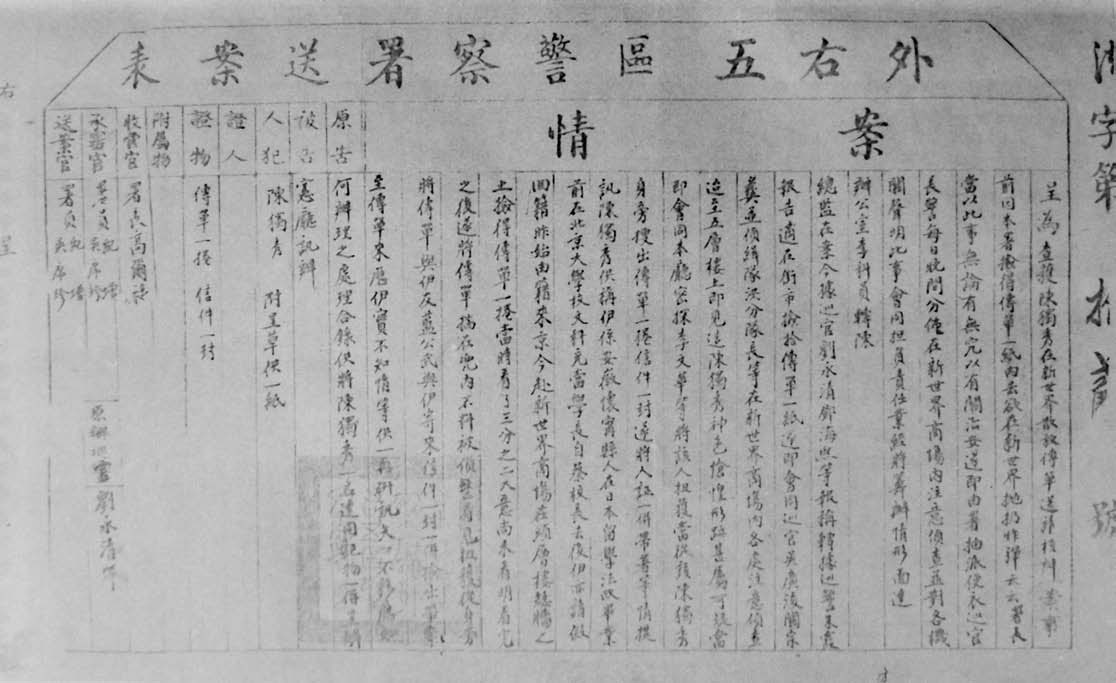 外右五區警察署送案表
案情
呈為查獲陳獨秀在新世界散放傳單送請核辦案事
前因本署撿得傳單一紙內云欲在新世界拋扔炸彈云云署長
當以此事無論有無究以有關治安遂即由署抽派便衣巡官
長警每日晚間分往在新世界商場內注意偵查並對各機
關聲明此事會同担負責任業經將籌辦情形面達
辦公室李科員轉陳
總監在案今據巡官劉永清齊海興等報稱轉據巡警
報告適在街市撿拾傳單一紙近即會同巡官吳廣凌關榮
奠並偵緝隊洪分隊長等在新世界商場內各處注意偵查
迨至五層樓上即見這陳獨秀神色愴惶形跡甚屬可疑當
即會同本廳密探李文華等將該人扭獲當從該陳獨秀
身旁搜出傳單一捲信件一封遂將人証一併帶署等情提
訊陳獨秀供稱伊係安徽懷寧縣人在日本留學法政畢業
前在北京大學校文科充當學長自蔡校長去後伊亦請假
回籍昨始由籍來京今赴新世界商場在頭層樓
上撿得傳單一捲當時看了三分之二大意尚未看明看完
之後遂將傳單揣在兜內不料被偵警看見扭獲從身旁
將傳單與伊友藍公武與伊寄來信件一封一併撿出單
至傳單來歷伊實不知情等供一再研訊矢口不移應如
何辦理之處理合錄供將陳獨秀一名連同犯物一併呈請
憲廳訊辦
原告
被告
人犯 陳獨秀 附呈草供一紙
證人
證物 傳單一捲 信件一封
附屬物
收案官 署長高爾
承審官 署員
送案官 署員
原辦巡官劉永清